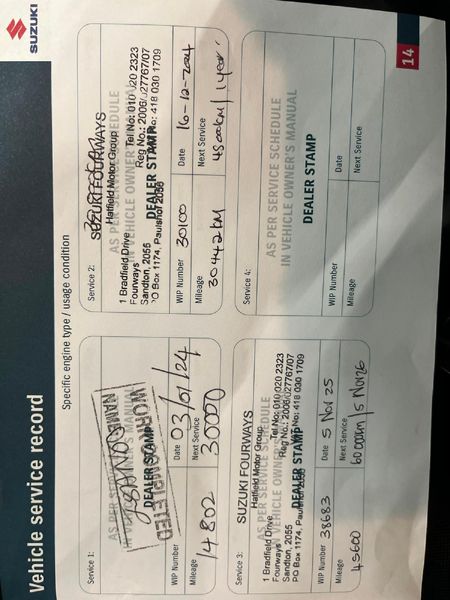 Vehicle service record
SUZUKI
Specific engine type / usage condition
Service 1:
AS PER SERVICE SCHEDULE
IN VEHICLE OWNER'S MANUAL
WORK COMPLETED
NAME
DEALER STAMP
WIP Number
Date 03/01/24
Mileage
14802
Next Service
30000
Service 2:
SUZUKI FOURWAYS
Hatfield Motor Group
AS PER SERVICE SCHEDULE
IN VEHICLE OWNER'S MANUAL
1 Bradfield Drive
Fourways
Sandton, 2055
PO Box 1174, Paulshof 2056
Tel No: 010 020 2323
Reg No.: 2006/027767/07
No: 418 030 1709
DEALER STAMP
WIP Number 30100
Date 16-12-2024
Mileage
30442km
Next Service
45000km / 1 year
Service 3:
SUZUKI FOURWAYS
Hatfield Motor Group
AS PER SERVICE SCHEDULE
IN VEHICLE OWNER'S MANUAL
1 Bradfield Drive
Fourways
Sandton, 2055
PO Box 1174, Paulshof 2056
Tel No: 010 020 2323
Reg No.: 2006/027767/07
No: 418 030 1709
DEALER STAMP
WIP Number 38683
Date 5 Nov 25
Mileage
45600
Next Service
60 000km / 5 Nov 26
Service 4:
AS PER SERVICE SCHEDULE
IN VEHICLE OWNER'S MANUAL
DEALER STAMP
WIP Number
Date
Mileage
Next Service
14